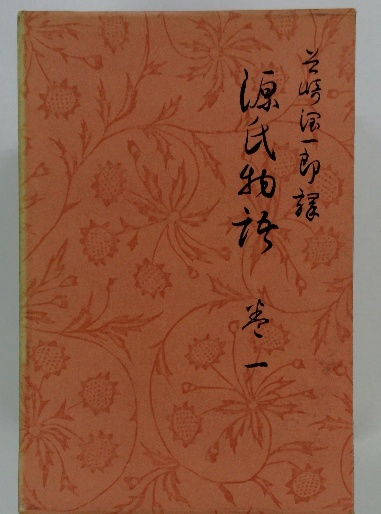 谷崎潤一郎譯
源氏物語
巻一